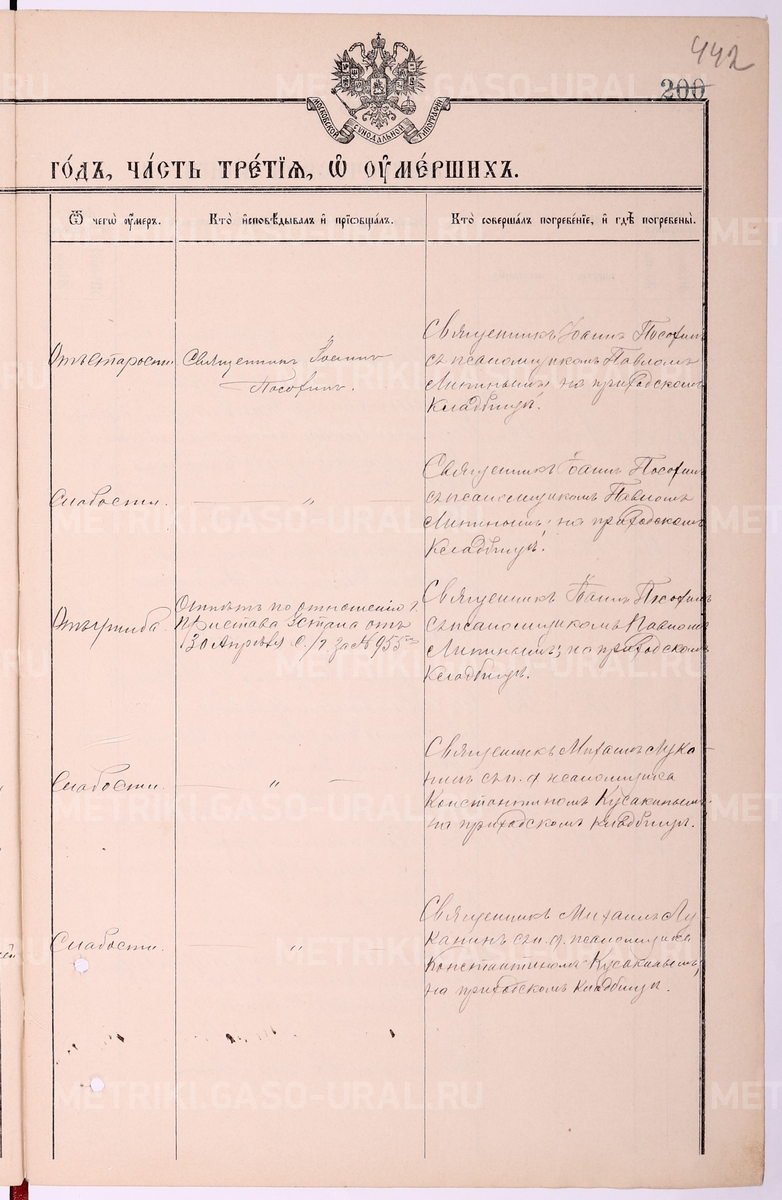 442
200
МОСКОВСКОЙ СѴНОДАЛЬНОЙ ТИПОГРАФІИ
ГО́ДЪ, ЧА́СТЬ ТРЕ́ТІѦ, Ѡ ОУМЕ́РШИХЪ.
Ѿ чегѡ̀ оу́меръ.
Кто̀ и҆сповѣ́дывалъ и҆ прїѡбща́лъ.
Кто̀ соверша́лъ погребе́нїе, и҆ гдѣ̀ погребены̀.
Отъ старости.
Священникъ Іоаннъ
Священникъ Іоаннъ
съ псаломщикомъ Павломъ
на приходскомъ
кладбищѣ.
Слабости.
"
Священникъ Іоаннъ
съ псаломщикомъ Павломъ
на приходскомъ
кладбищѣ.
Отъ ушиба.
Отпѣтъ по отношенію г.
Пристава 3 стана отъ
30 Апрѣля с./г. за № 955
Священникъ Іоаннъ
съ псаломщикомъ Павломъ
на приходскомъ
кладбищѣ.
Слабости.
"
Священникъ Михаилъ Лука-
нинъ съ и. д. псаломщика
Константиномъ Кусакинымъ
на приходскомъ кладбищѣ.
Слабости.
"
Священникъ Михаилъ Лу-
канинъ съ и. д. псаломщика
Константиномъ Кусакинымъ,
на приходскомъ кладбищѣ.
METRIKI.GASO-URAL.RU